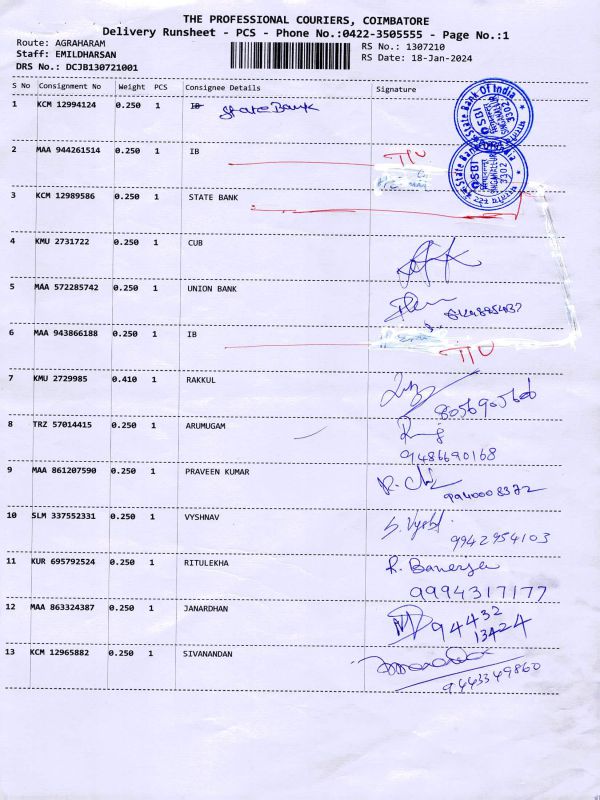 THE PROFESSIONAL COURIERS, COIMBATORE
Delivery Runsheet - PCS - Phone No.:0422-3505555 - Page No.:1
Route: AGRAHARAM
Staff: EMILDHARSAN
DRS No.: DCJB130721001
RS No.: 1307210
RS Date: 18-Jan-2024
S No Consignment No Weight PCS Consignee Details Signature
1 KCM 12994124 0.250 1 State Bank
State Bank Of India
SBI
3302
2 MAA 944261514 0.250 1 IB
State Bank India
SBI
3302
3 KCM 12989586 0.250 1 STATE BANK
4 KMU 2731722 0.250 1 CUB
5 MAA 572285742 0.250 1 UNION BANK
6 MAA 943866188 0.250 1 IB
7 KMU 2729985 0.410 1 RAKKUL
8 TRZ 57014415 0.250 1 ARUMUGAM
9486690168
9 MAA 861207590 0.250 1 PRAVEEN KUMAR
9940008372
10 SLM 337552331 0.250 1 VYSHNAV
9942954103
11 KUR 695792524 0.250 1 RITULEKHA R. Banerjee
9994317177
12 MAA 863324387 0.250 1 JANARDHAN 94432
13424
13 KCM 12965882 0.250 1 SIVANANDAN
9443349860